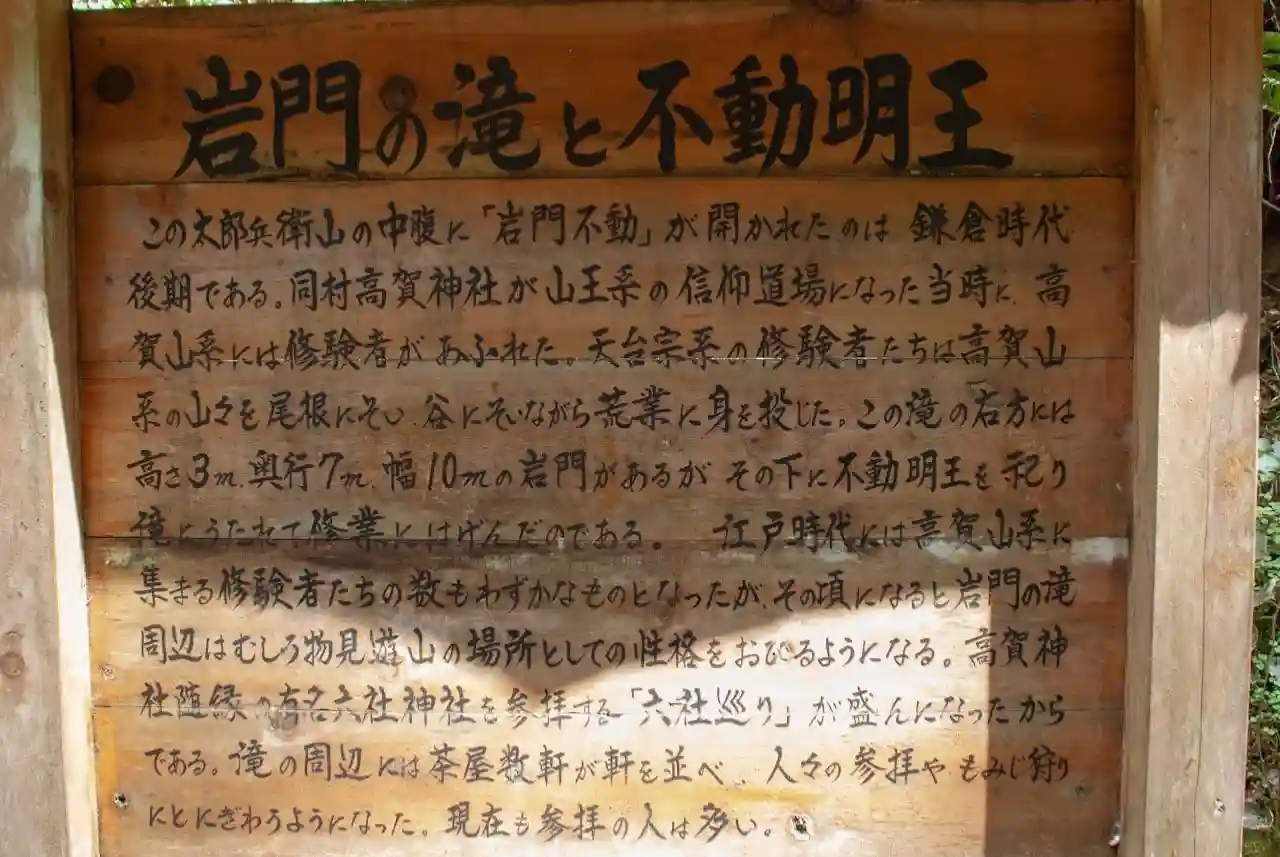 岩門の滝と不動明王
この太郎兵衛山の中腹に「岩門不動」が開かれたのは 鎌倉時代
後期である。同村高賀神社が山王系の信仰道場になった当時に、高
賀山系には修験者があふれた。天台宗系の修験者たちは高賀山
系の山々を尾根にそい、谷にそいながら荒業に身を投じた。この滝の右方には
高さ3m、奥行7m、幅10mの岩門があるが その下に不動明王を祀り
滝にうたれて修業にはげんだのである。 江戸時代には高賀山系に
集まる修験者たちの数もわずかなものとなったが、その頃になると岩門の滝
周辺はむしろ物見遊山の場所としての性格をおびるようになる。高賀神
社随縁の有名六社神社を参拝する「六社巡り」が盛んになったから
である。滝の周辺には茶屋数軒が軒を並べ、人々の参拝や もみじ狩り
にとにぎわうようになった。現在も参拝の人は多い。